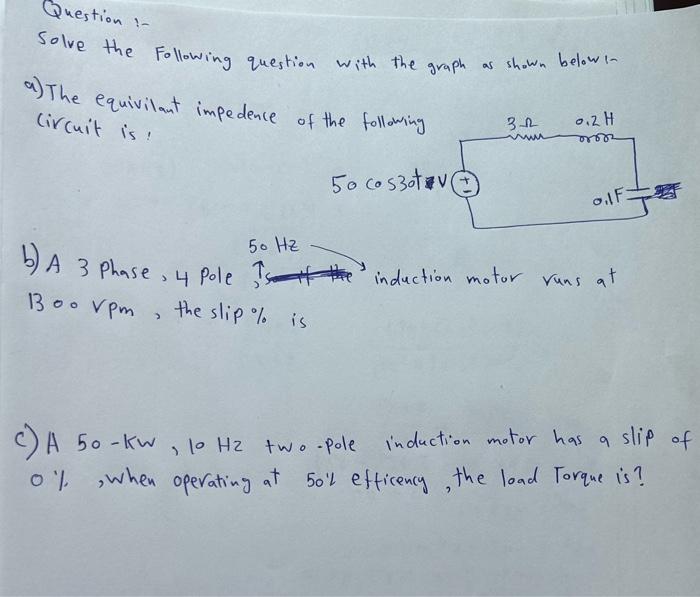 Question :-
Solve the Following question with the graph as shown below :-
a) The equivilant impedence of the following
Circuit is :
3 Ω
0.2 H
50 cos30t V
+
-
0.1F
50 Hz
b) A 3 Phase, 4 Pole, induction motor runs at
1300 rpm, the slip % is
c) A 50-KW, 10 Hz two-pole induction motor has a slip of
0%, when operating at 50% efficency, the load Torque is?